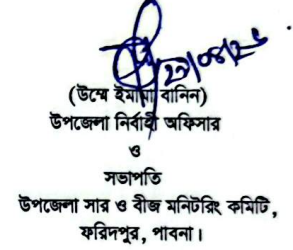 (উম্মে ইমামা বানিন)
উপজেলা নির্বাহী অফিসার
ও
সভাপতি
উপজেলা সার ও বীজ মনিটরিং কমিটি,
ফরিদপুর, পাবনা।